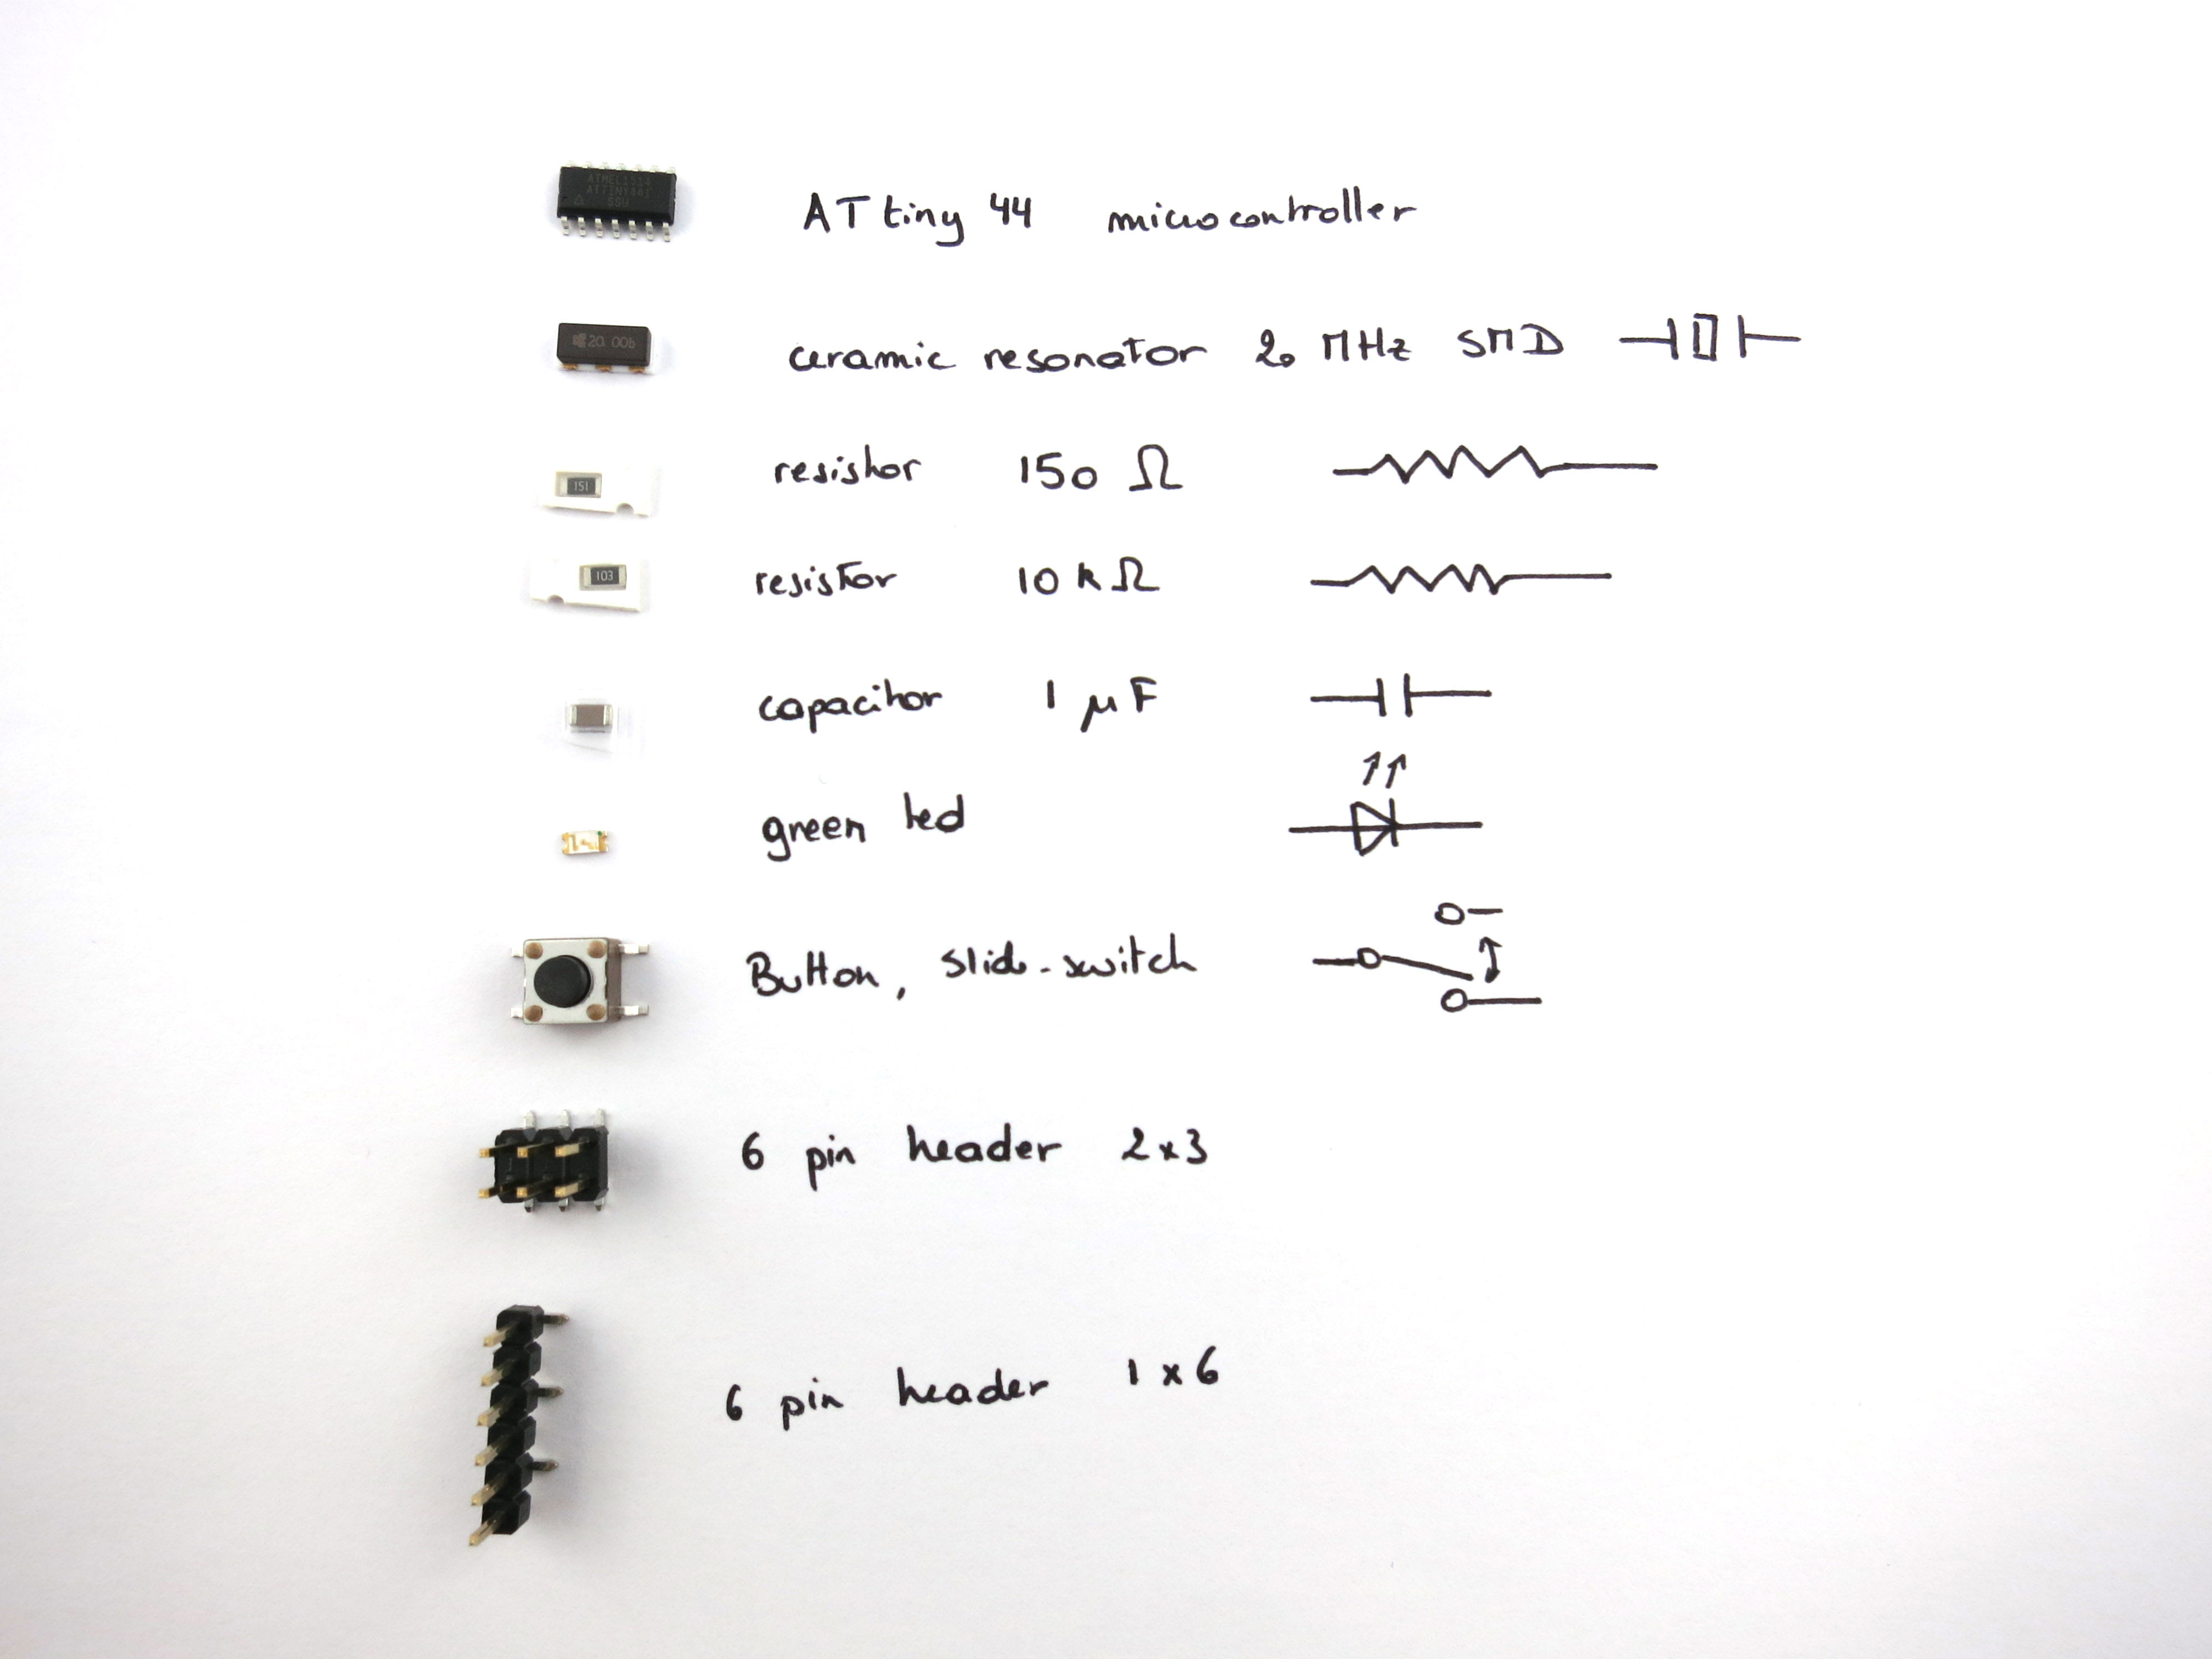 ATMEL1514
ATTINY44A
SSU
ATtiny 44 microcontroller
20.00b
ceramic resonator 20 MHz SMD
151
resistor 150 Ω
103
resistor 10 kΩ
capacitor 1 μF
green led
Button, slide-switch
6 pin header 2x3
6 pin header 1x6